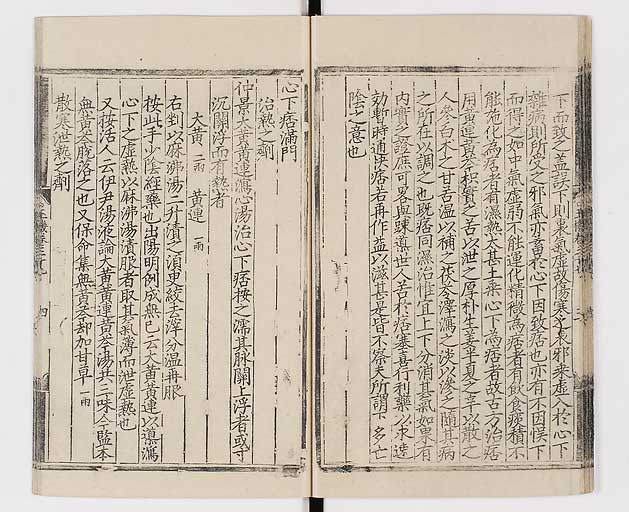 下而致之蓋誤下則裏氣虛故傷寒之表邪乘虛入於心下
雜病則所受之邪氣亦蓄於心下因致痞也亦有不因誤下
而得之如中氣虛弱不能運化精微為痞者有飲食痰積不
能施化為痞者有濕熱太甚土乘心下為痞者故古方治痞
用黃連黃芩枳實之苦以泄之厚朴生薑半夏之辛以散之
人參白朮之甘苦溫以補之茯苓澤瀉之淡以滲之隨其病
之所在以調之也既痞同濕治惟宜上下分消其氣如果有
內實之證應可畧與踈導世人苦於痞塞喜行利藥以求速
効暫時通快痞若再作益以滋甚是皆不察夫所謂下多亡
陰之意也
心下痞滿門
治熱之劑
仲景大黃黃連瀉心湯治心下痞按之濡其脉關上浮者或寸
沉關浮而有熱者
大黃 二兩 黃連 一兩
右剉以麻沸湯二升漬之湏臾絞去滓分溫再服
按此手少陰經藥也出陽明例成無已云大黃黃連以導瀉
心下之虛熱以麻沸湯漬服者取其氣薄而泄虛熱也
又按活人云伊尹湯液論大黃黃連黃芩湯共三味今監本
無黃芩脫落之也又保命集無黃芩却加甘草 一兩
散寒泄熱之劑
四